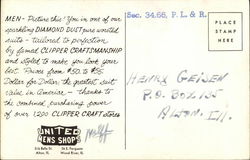 Sec. 34.66, P. L. & R.
MEN - Picture this! You in one of our
sparkling DIAMOND DUST pure worsted
suits - tailored to perfection
by famed CLIPPER CRAFTSMANSHIP
and styled to make you look your
best. Priced from $50. to $65.
Dollar for Dollar the greatest suit
value in America - thanks to
the combined purchasing power
of over 1200 CLIPPER CRAFT stores
PLACE
STAMP
HERE
HENRY GEISEN
P.O. BOX 155
ALTON, Ill.
UNITED
MENS SHOPS
Alton, Ill.
Wood River, Ill.